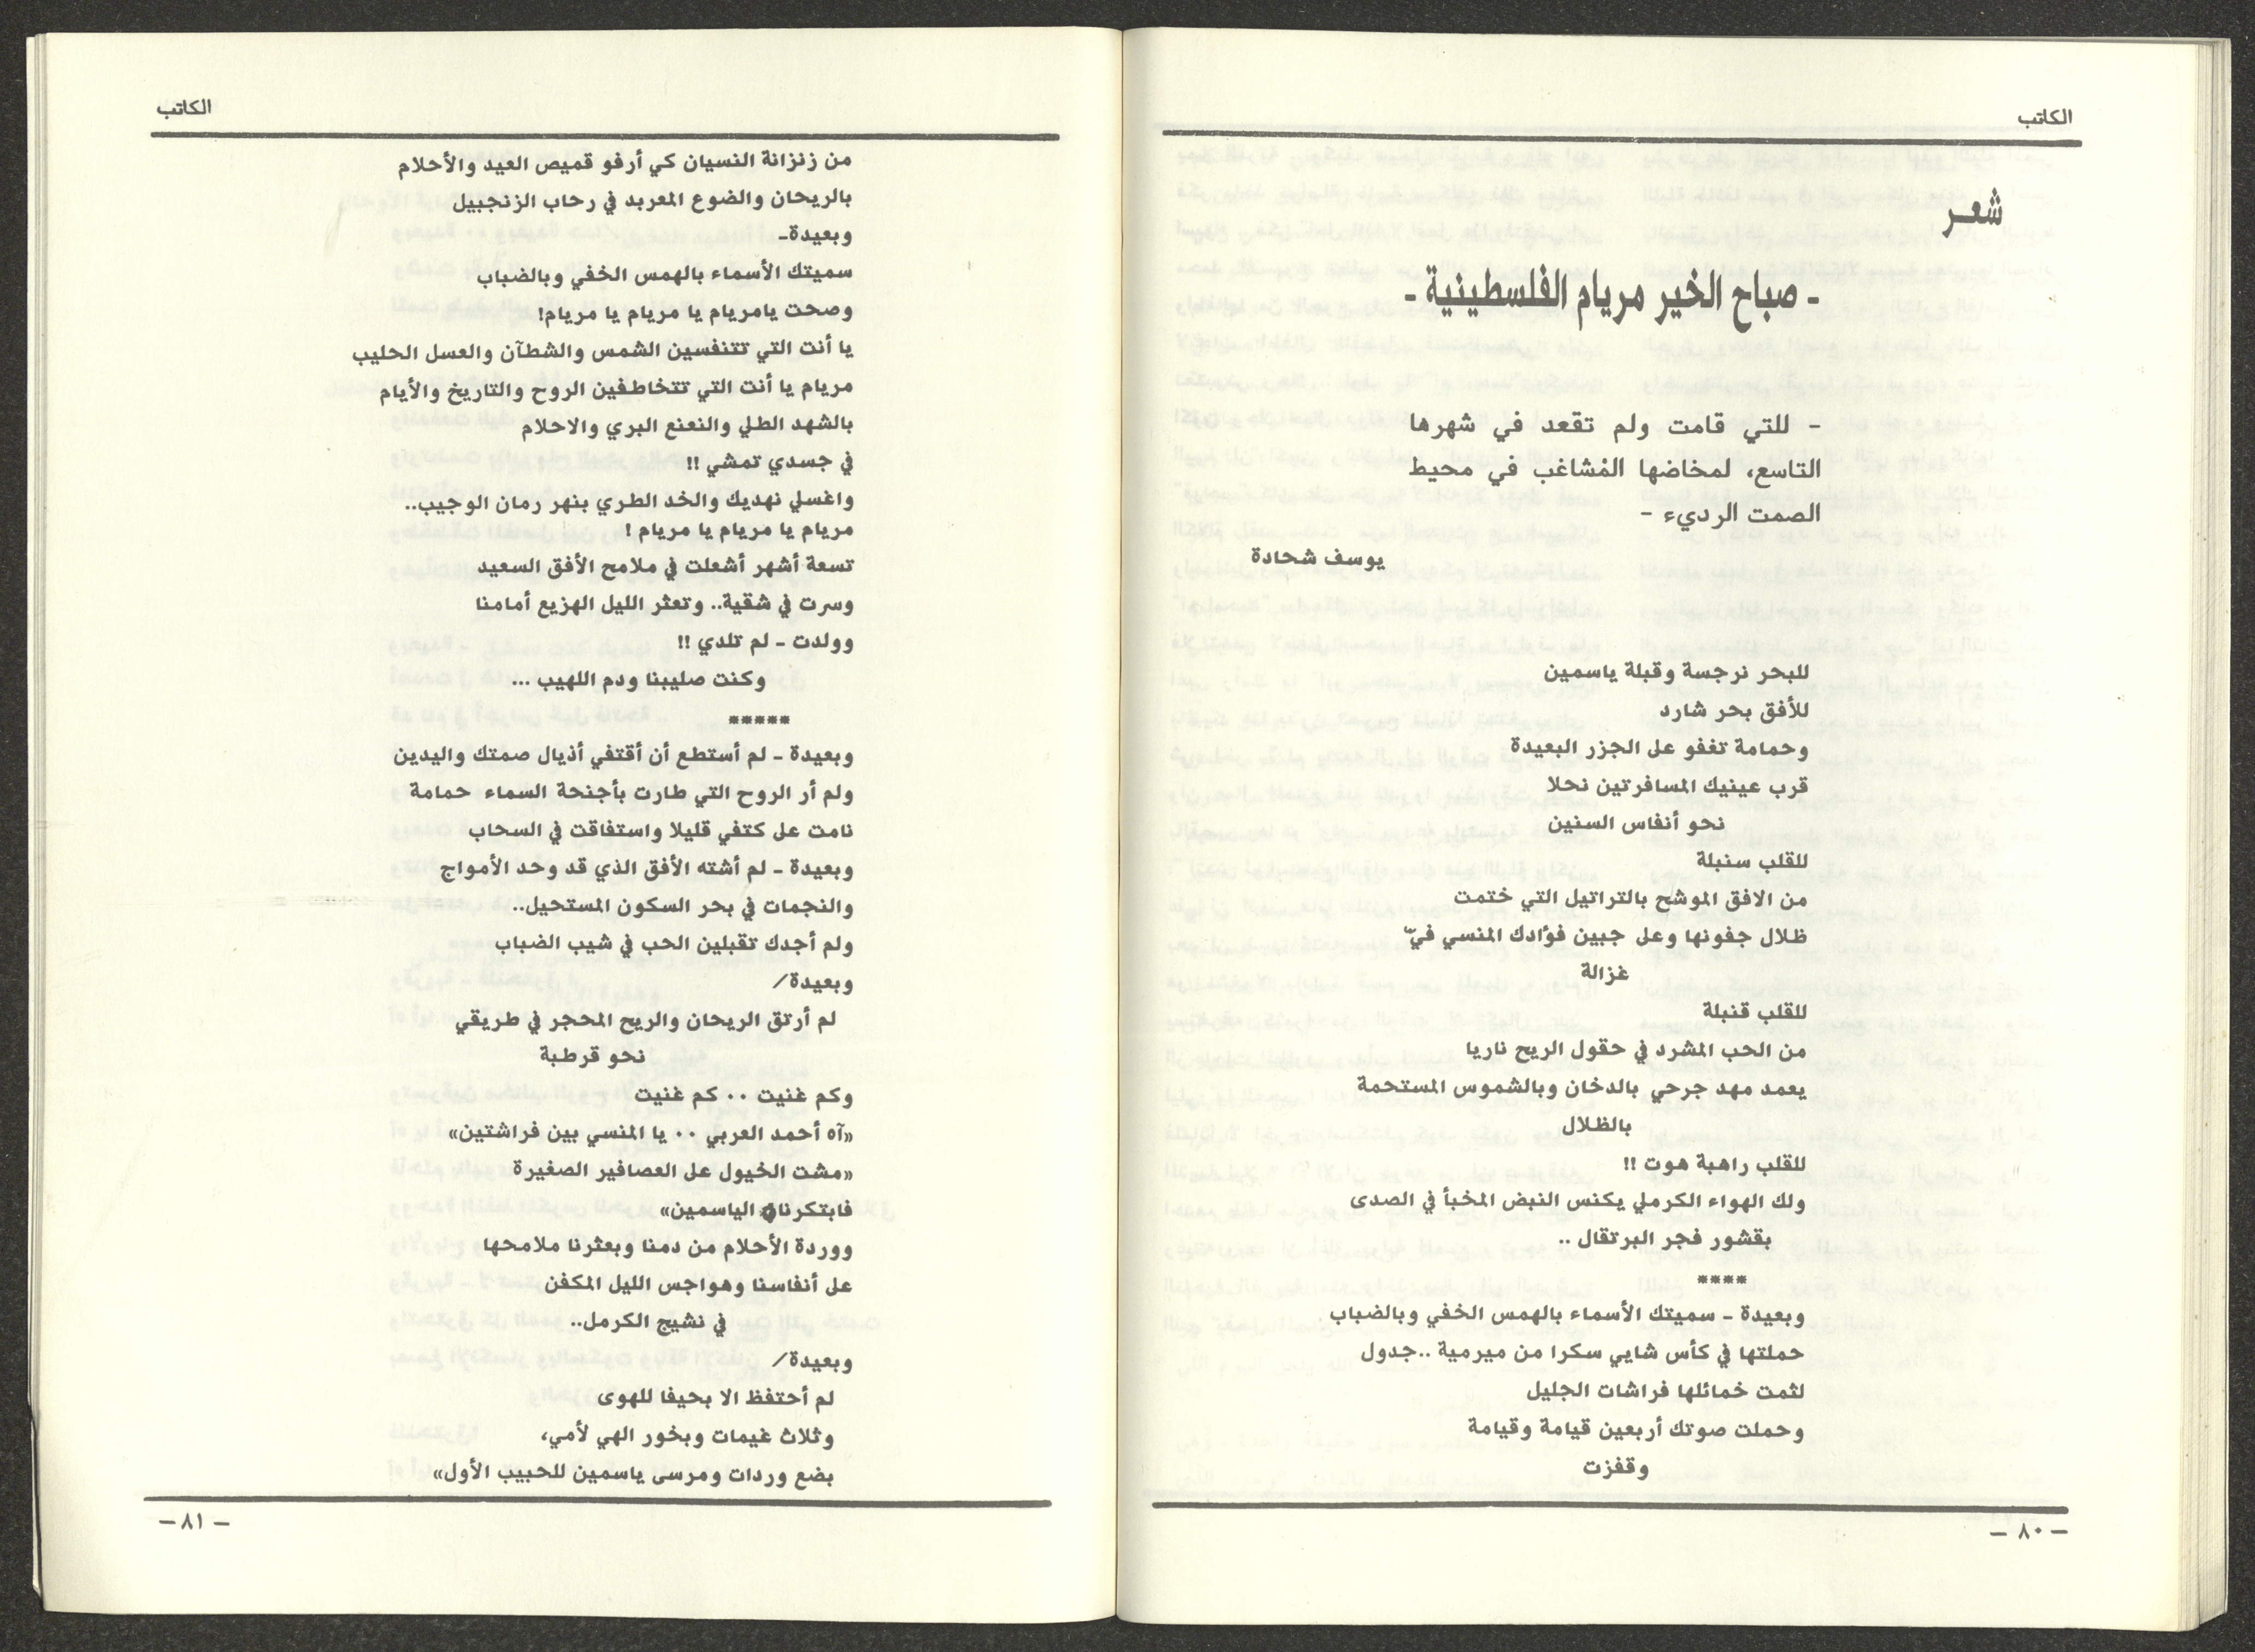 الكاتب
شعر
- صباح الخير مريام الفلسطينية -
- للتي قامت ولم تقعد في شهرها
التاسع، لمخاضها المُشاغب في محيط
الصمت الرديء -
يوسف شحادة
للبحر نرجسة وقبلة ياسمين
للأفق بحر شارد
وحمامة تغفو على الجزر البعيدة
قرب عينيك المسافرتين نحلا
نحو أنفاس السنين
للقلب سنبلة
من الافق الموشح بالتراتيل التي ختمت
ظلال جفونها وعلى جبين فؤادك المنسي فيّ
غزالة
للقلب قنبلة
من الحب المشرد في حقول الريح ناريا
يعمد مهد جرحي بالدخان وبالشموس المستحمة
بالظلال
للقلب راهبة هوت !!
ولك الهواء الكرملي يكنس النبض المخبأ في الصدى
بقشور فجر البرتقال ..
****
وبعيدة - سميتك الأسماء بالهمس الخفي وبالضباب
حملتها في كأس شايي سكرا من ميرمية ..جدول
لثمت خمائلها فراشات الجليل
وحملت صوتك أربعين قيامة وقيامة
وقفزت
- ٨٠ -
الكاتب
من زنزانة النسيان كي أرفو قميص العيد والأحلام
بالريحان والضوع المعربد في رحاب الزنجبيل
وبعيدة-
سميتك الأسماء بالهمس الخفي وبالضباب
وصحت يامريام يا مريام يا مريام!
يا أنت التي تتنفسين الشمس والشطآن والعسل الحليب
مريام يا أنت التي تتخاطفين الروح والتاريخ والأيام
بالشهد الطلي والنعنع البري والاحلام
في جسدي تمشي !!
واغسلي نهديك والخد الطري بنهر رمان الوجيب..
مريام يا مريام يا مريام !
تسعة أشهر أشعلت في ملامح الأفق السعيد
وسرت في شقية.. وتعثر الليل الهزيع أمامنا
وولدت - لم تلدي !!
وكنت صليبنا ودم اللهيب ...
*****
وبعيدة - لم أستطع أن أقتفي أذيال صمتك واليدين
ولم أر الروح التي طارت بأجنحة السماء حمامة
نامت على كتفي قليلا واستفاقت في السحاب
وبعيدة - لم أشته الأفق الذي قد وحد الأمواج
والنجمات في بحر السكون المستحيل..
ولم أجدك تقبلين الحب في شيب الضباب
وبعيدة/
لم أرتق الريحان والريح المحجر في طريقي
نحو قرطبة
وكم غنيت ٠٠ كم غنيت
«آه أحمد العربي ٠٠ يا المنسي بين فراشتين»
«مشت الخيول على العصافير الصغيرة
فابتكرنا الياسمين»
ووردة الأحلام من دمنا وبعثرنا ملامحها
على أنفاسنا وهواجس الليل المكفن
في نشيج الكرمل..
وبعيدة/
لم أحتفظ الا بحيفا للهوى
وثلاث غيمات وبخور الهي لأمي،
بضع وردات ومرسى ياسمين للحبيب الأول»
- ٨١ -